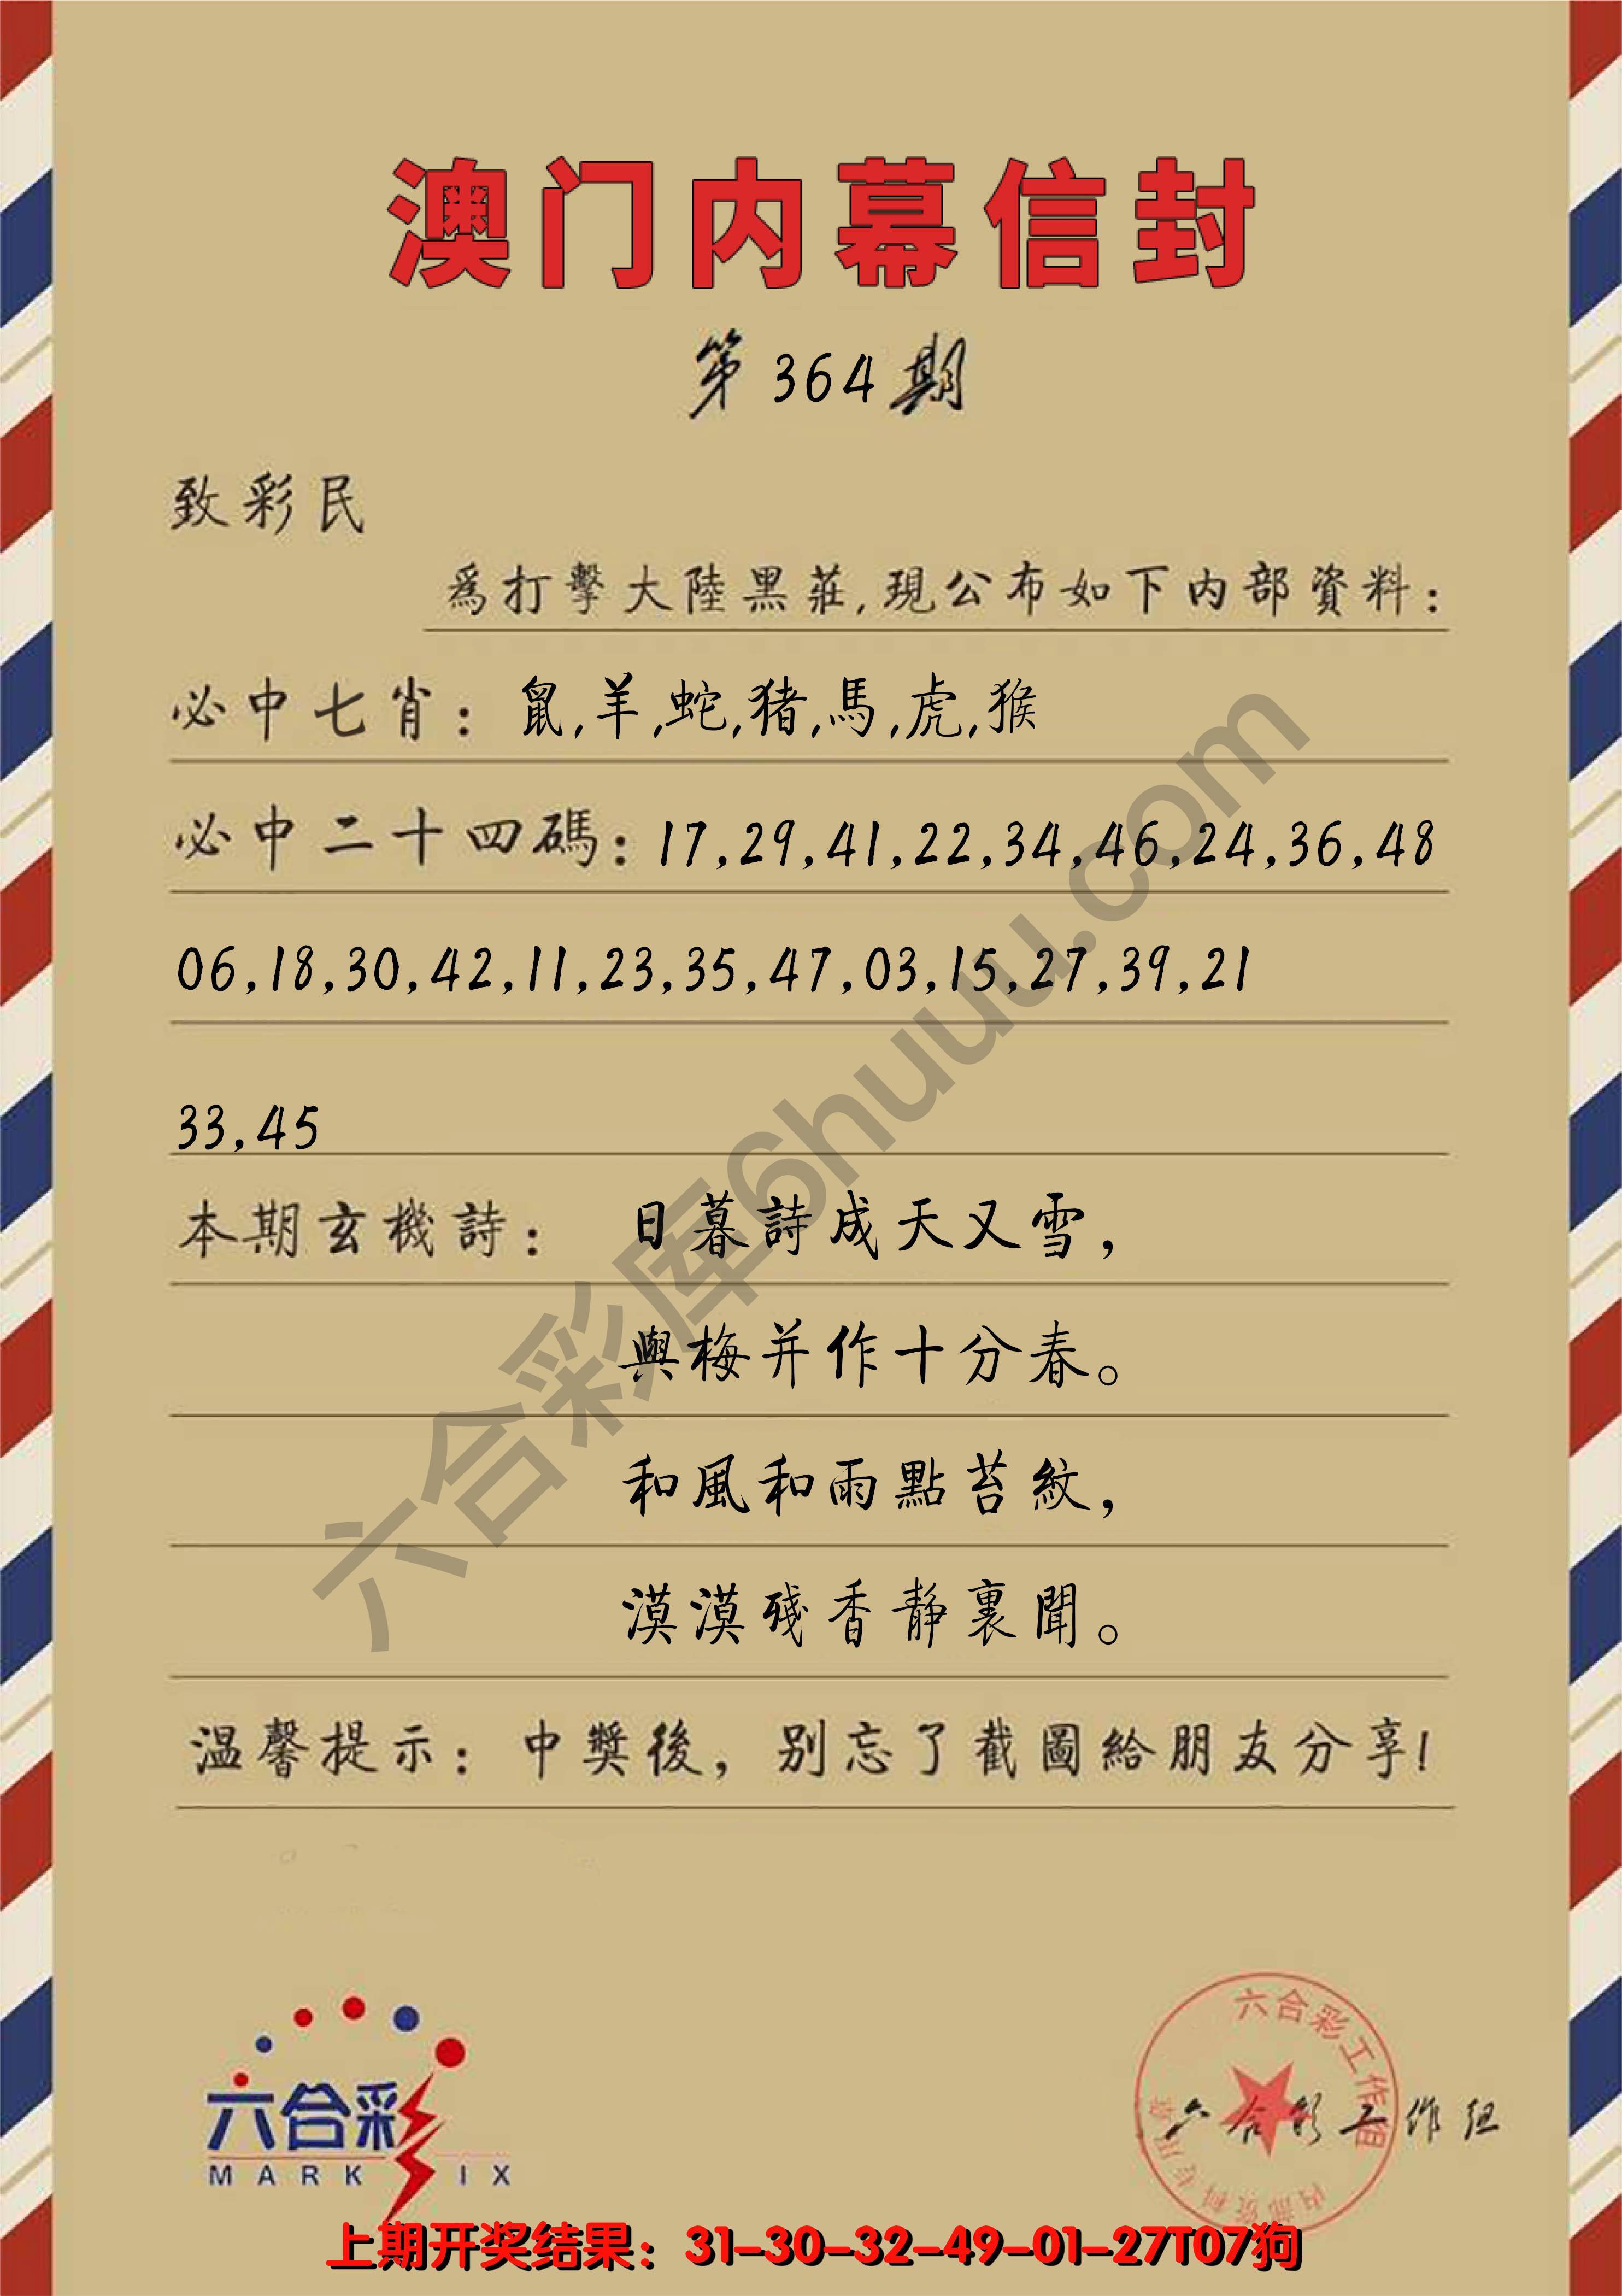 澳门内幕信封
第364期
致彩民
為打擊大陸黑莊,現公布如下内部資料:
必中七肖: 鼠,羊,蛇,猪,馬,虎,猴
必中二十四碼: 17,29,41,22,34,46,24,36,48
06,18,30,42,11,23,35,47,03,15,27,39,21
33,45
本期玄機詩: 日暮詩成天又雪,
與梅并作十分春。
和風和雨點苔紋,
漠漠殘香静裏聞。
温馨提示: 中獎後, 别忘了截圖給朋友分享!
六合彩库6huuu.com
六合彩
MARK IX
六合彩工作组
六合彩工作组
上期开奖结果: 31-30-32-49-01-27T07狗